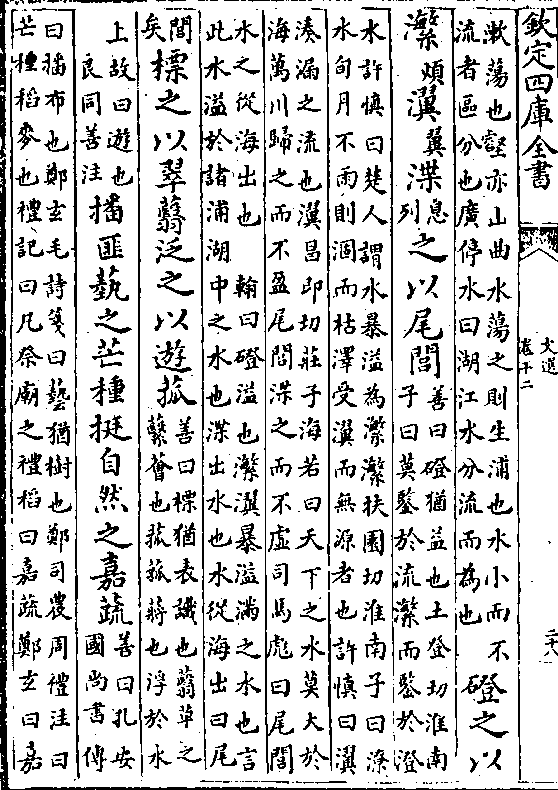 欽定四庫全書
文選
卷十二
二十八
漱蕩也壑亦山曲水蕩之則生浦也水小而不
流者區分也廣停水曰湖江水分流而為也
磴之以
瀿煩瀷翼渫息列之以尾閭
善曰磴猶益也土登切淮南
子曰莫鑒於流瀿而鑒於澄
水許慎曰楚人謂水暴溢為瀿瀿扶園切淮南子曰潦
水旬月不雨則涸而枯澤受瀷而無源者也許慎曰瀷
湊漏之流也瀷昌即切莊子海若曰天下之水莫大於
海萬川歸之而不盈尾閭渫之而不虛司馬彪曰尾閭
水之從海出也 翰曰磴溢也瀿瀷暴溢滿之水也言
此水溢於諸浦湖中之水也渫出水也水從海出曰尾
閭
矣
標之以翠蘙泛之以遊菰
善曰標猶表識也蘙草之
蘙薈也菰菰蔣也浮於水
上故曰遊也
良同善注
播匪藝之芒種挺自然之嘉蔬
善曰孔安
國尚書傳
曰播布也鄭玄毛詩箋曰藝猶樹也鄭司農周禮注曰
芒種稻麥也禮記曰凡祭廟之禮稻曰嘉蔬鄭玄曰嘉